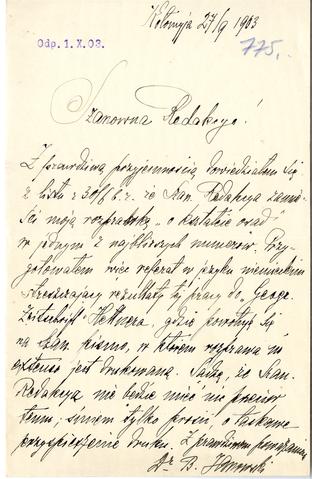 Kołomyja 27/9 1903
Odp. 1. X. 03.
775.
Szanowna Redakcyo!
Z prawdziwą przyjemnością dowiedziałem się
z listu z 30/8 b. r. że Szan. Redakcya zamie-
ści moją rozprawkę „o kształcie osad"
w jednym z najbliższych numerów. Przy-
gotowałem więc referat w języku niemieckim
streszczający rezultaty tej pracy do „Geogr.
Zeitschrift" Hettnera, gdzie powołuję się
na szan. pismo, w którem rozprawa in
extenso jest drukowana. Sądzę, że Szan.
Redakcya nie będzie mieć nic przeciw
temu; śmiem tylko prosić o łaskawe
przyspieszenie druku. Z prawdziwem poważaniem
Dr B. Janowski